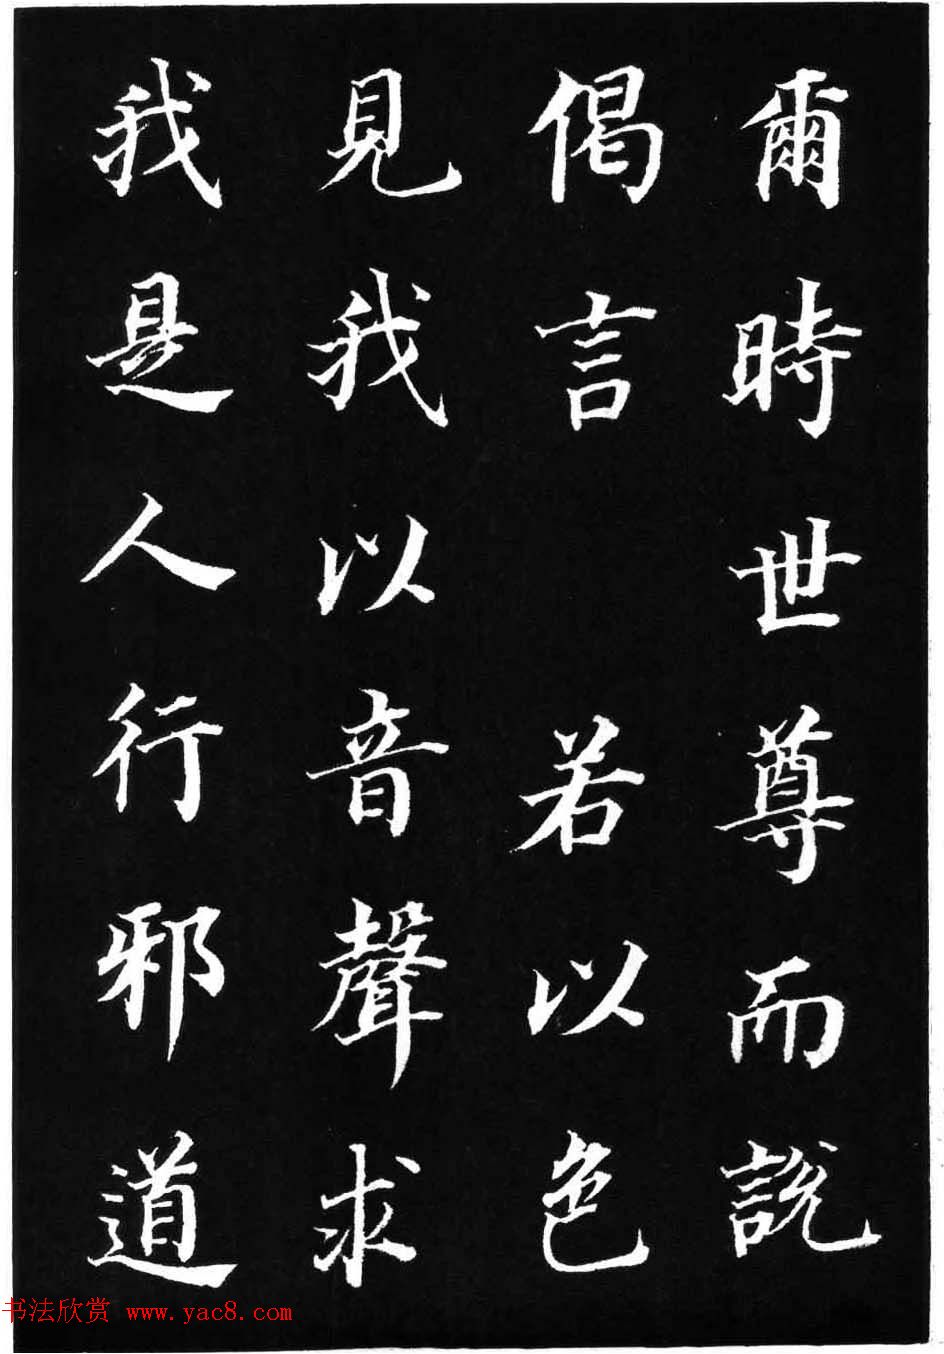 爾時世尊而說
偈言 若以色
見我以音聲求
我是人行邪道
书法欣赏 www.yac8.com